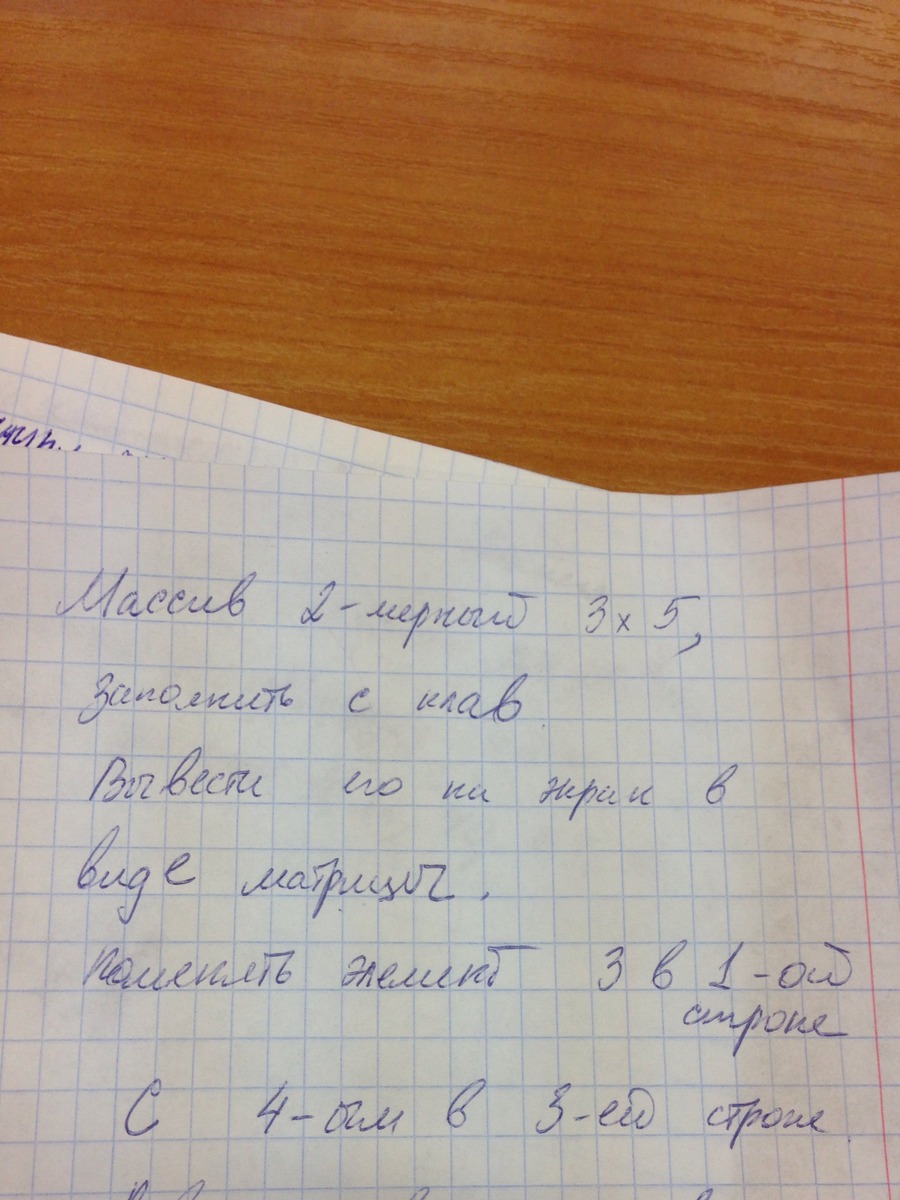 Массив 2-мерный 3х5,
Заполнить с клав
Вывести его на экран в
виде матрицы.
Поменять элемент 3 в 1-ой
строке
С 4-ым в 3-ей строке